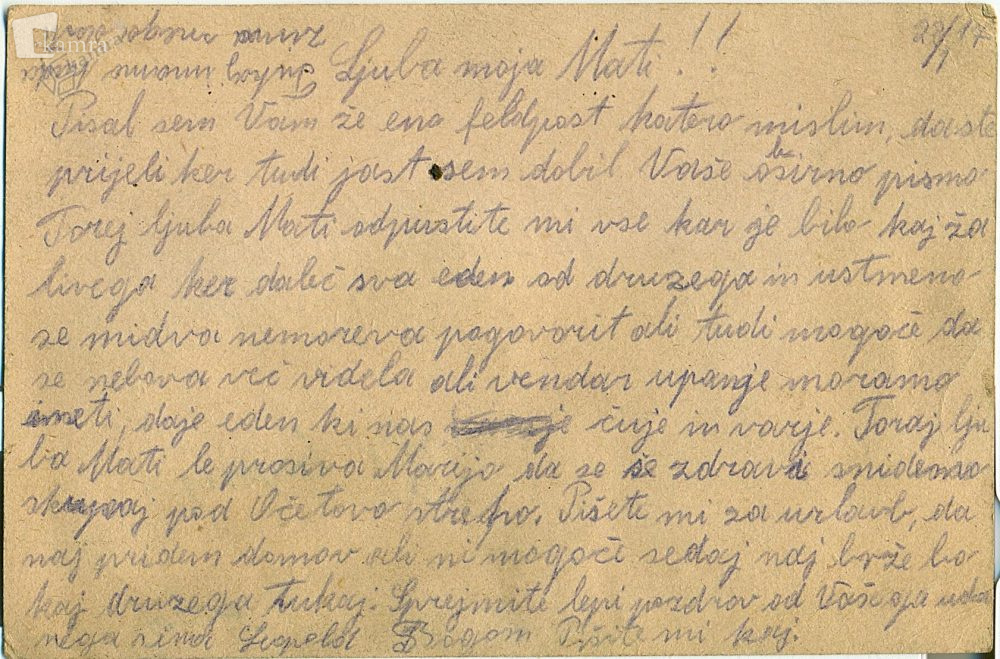 kamra
29/1 17
Ljuba moja Mati!!
Pisal sem Vam že eno feldpost katero mislim, da ste
prijeli ker tudi jast sem dobil Vaše obširno pismo
Torej ljuba Mati odpustite mi vse kar je bilo kaj ža
livega ker daleč sva eden od druzega in ustmeno
se midva nemoreva pogovorit ali tudi mogoče da
se nebova več videla ali vendar upanje moramo
imeti, daje eden ki nas čuje in varje. Toraj lju
ba Mati le prosiva Marijo da se še zdravi snidemo
skupaj pod Očetovo streho. Pišete mi za urlavb, da
naj pridem domov ali ni mogoče sedaj naj brže bo
kaj druzega tukaj. Sprejmite lepi pozdrov od Vašega uda
nega sina Leopold Bogom Pišite mi kaj.